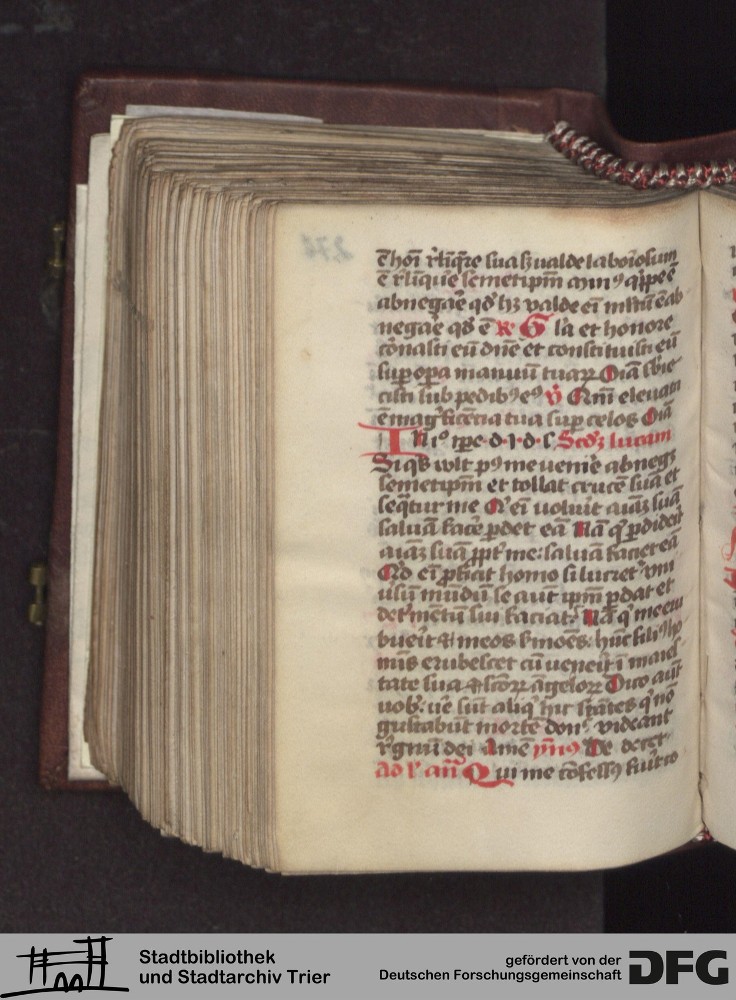 ē hoi r̄liq̄re sua sꝫ valde laboiosum
ē r̄liq̄ue semetip̄m
abnegaē qd̓ hꝫ valde ei
negaē qd̓ ē R Gl'ia et honore
conasti eū dn̄e et constituisti eū
sup opa manuū tuaꝝ Oīa sb̓ie
cisti sub pedibꝫ eꝰ v̓ Qm̄ eleuata
ē mag̓ficēcia tua sup celos Oīa
In iꝰ tpe. d. i. d. s. Scd̓ꝫ lucam
Siqs̓ wlt pꝰ me uenire abnegꝫ
semetip̄m et tollat crucē suā et
seq̄tur me Q̓ ei uoluit aīaꝫ suā
saluā facē pdet eā Nā q̓ pdidit̓
aīaꝫ suā ppt̓ me: saluā faciet eā
Q̓d ei pficit homo si lucret̓ vni
usū mūdū se aut ip̄m pdat et
det̓mētū sui faciat: Nā q̓ me eru
bueit & meos s̓moēs: hūc filiꝰ ho
mīs erubescet cū uenerit ī maies
tate sua & scōꝝ āgeloꝝ Dico aūt
uob̓: ue sūt aliq̓ hic stātes q̓ nō
gustabūt mortē donꝫ videant
r̓gnū dei Amē ymꝰ De
ad l' añ Qui me cōfessꝰ fuit̓ co
Stadtbibliothek
und Stadtarchiv Trier
gefördert von der
Deutschen Forschungsgemeinschaft
DFG